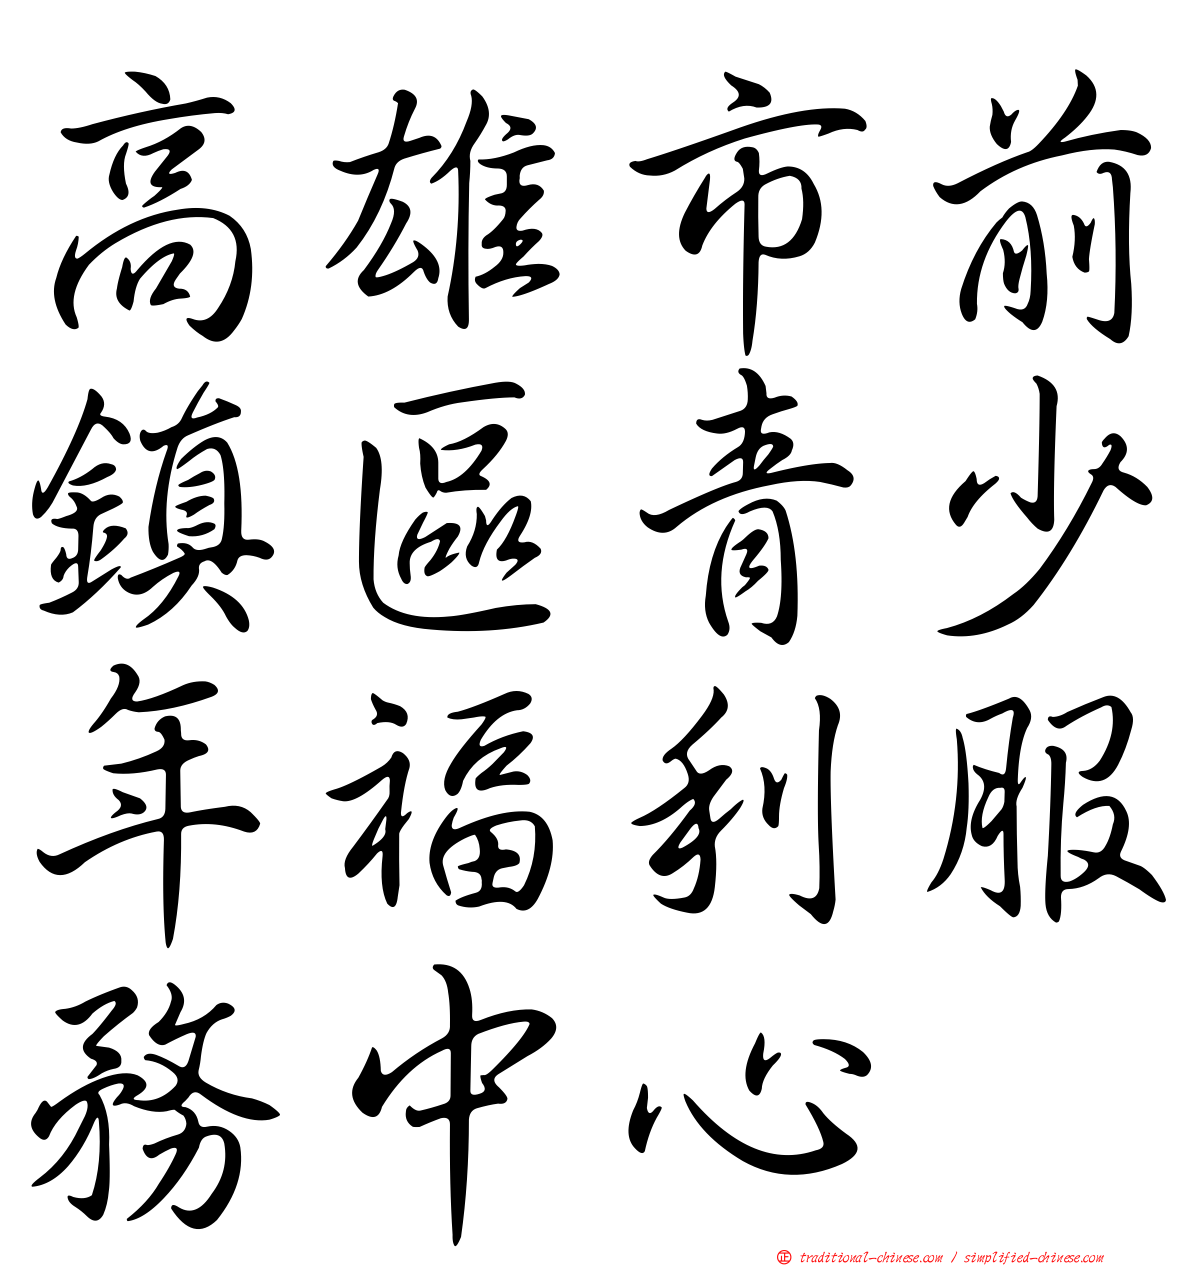 高雄市前
鎮區青少
年福利服
務中心
正 traditional-chinese.com / simplified-chinese.com